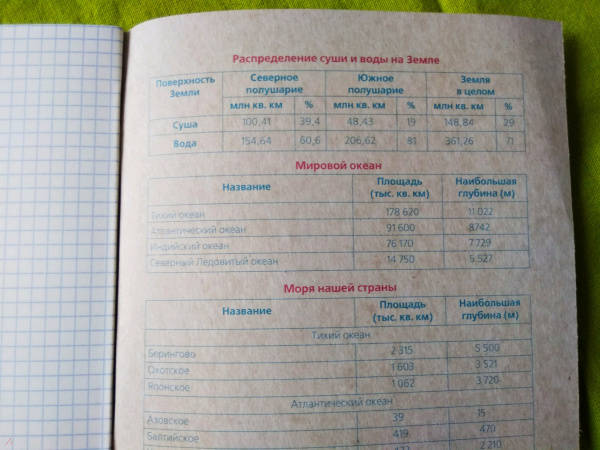 Распределение суши и воды на Земле
Поверхность Земли Северное полушарие Южное полушарие Земля в целом
млн кв. км % млн кв. км % млн кв. км %
Суша 100,41 39,4 48,43 19 148,84 29
Вода 154,64 60,6 206,62 81 361,26 71
Мировой океан
Название Площадь (тыс. кв. км) Наибольшая глубина (м)
Тихий океан 178 620 11 022
Атлантический океан 91 600 8742
Индийский океан 76 170 7 729
Северный Ледовитый океан 14 750 5 527
Моря нашей страны
Название Площадь (тыс. кв. км) Наибольшая глубина (м)
Тихий океан
Берингово 2 315 5 500
Охотское 1 603 3 521
Японское 1 062 3 720
Атлантический океан
Азовское 39 15
Балтийское 419 470
2 210